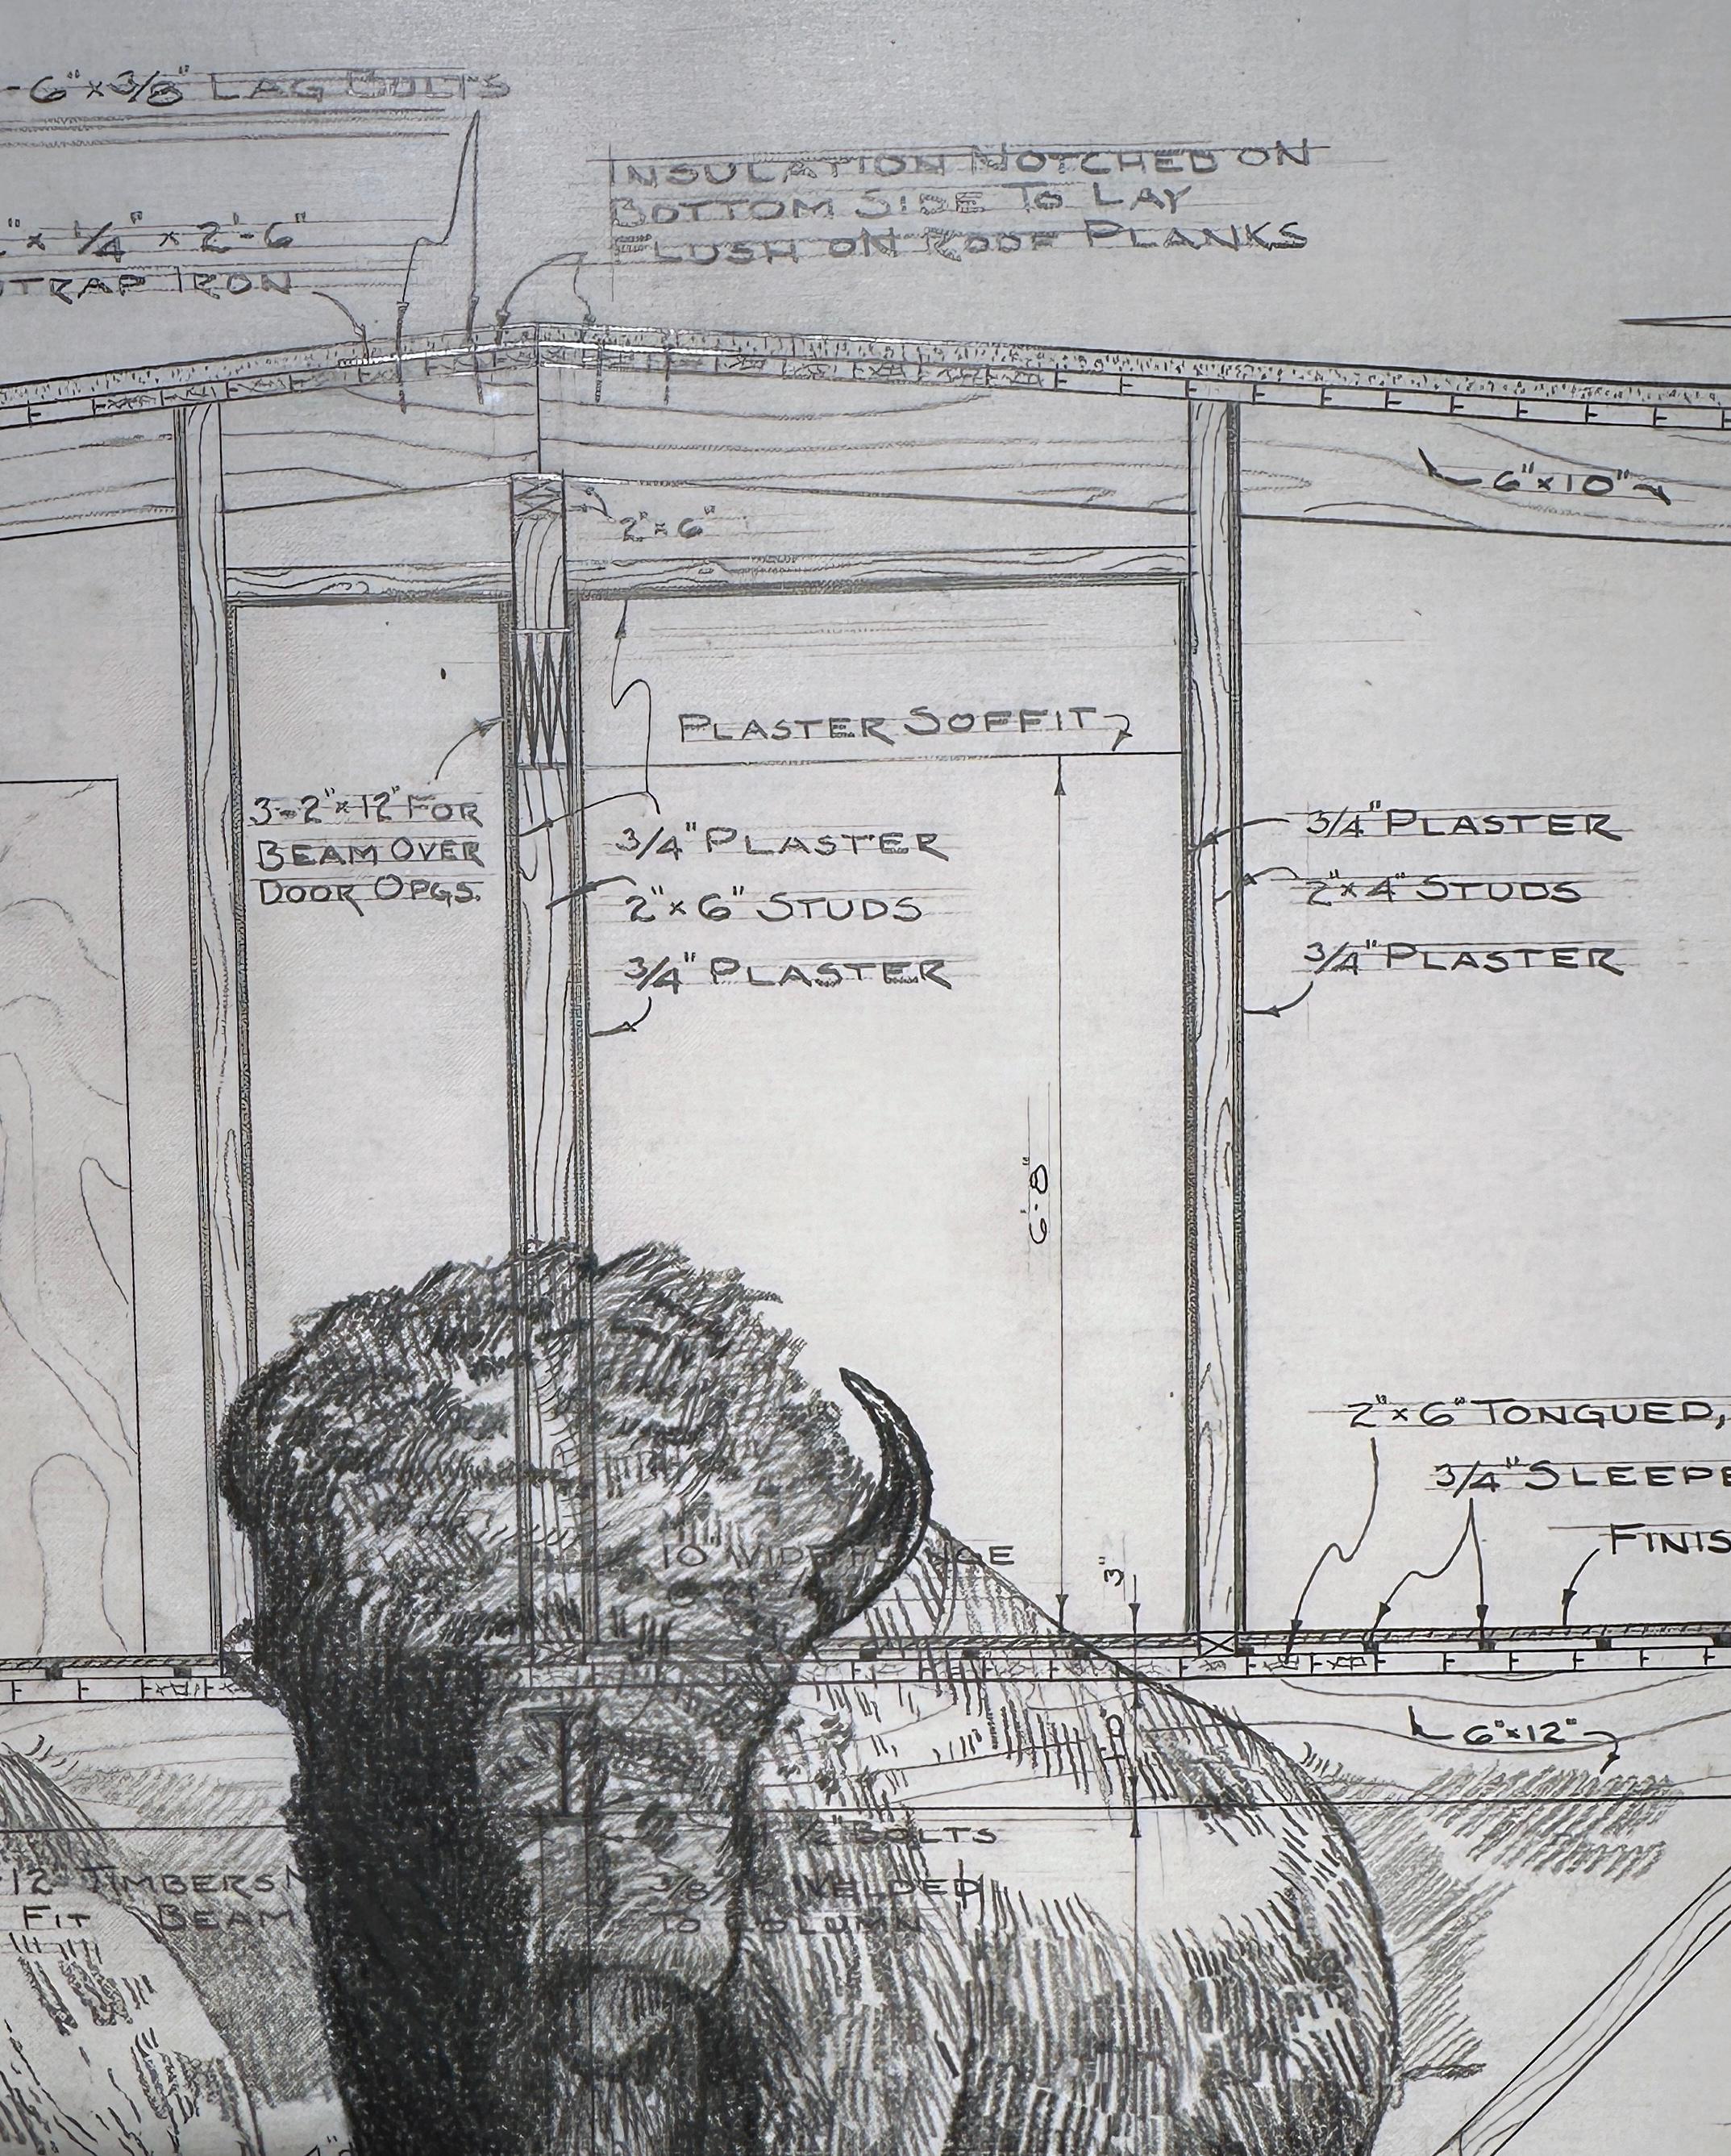 -6"x3/8" LAG BOLTS
INSULATION NOTCHED ON
BOTTOM SIDE TO LAY
FLUSH ON ROOF PLANKS
"x 1/4" x 2'-6"
STRAP IRON
6"x10"
2"x6"
PLASTER SOFFIT
3-2"x12" FOR
BEAM OVER
DOOR OPGS.
3/4" PLASTER
2"x6" STUDS
3/4" PLASTER
3/4" PLASTER
2"x4" STUDS
3/4" PLASTER
6'-8"
2"x6" TONGUED,
3/4" SLEEPE
FINIS
10 WIDE FLANGE
3"
6"x12"
1/2" BOLTS
12 TIMBERS
FIT BEAM
3/8 WELDED
TO COLUMN